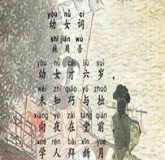 yòu nǚ cí
幼女词
shī jiān wú
施肩吾
yòu nǚ cái liù suì
幼女才六岁，
wèi zhī qiǎo yǔ zhuō
未知巧与拙
xiàng yè zài táng qián
向夜在堂前
xué rén bài xīn yuè
学人拜新月